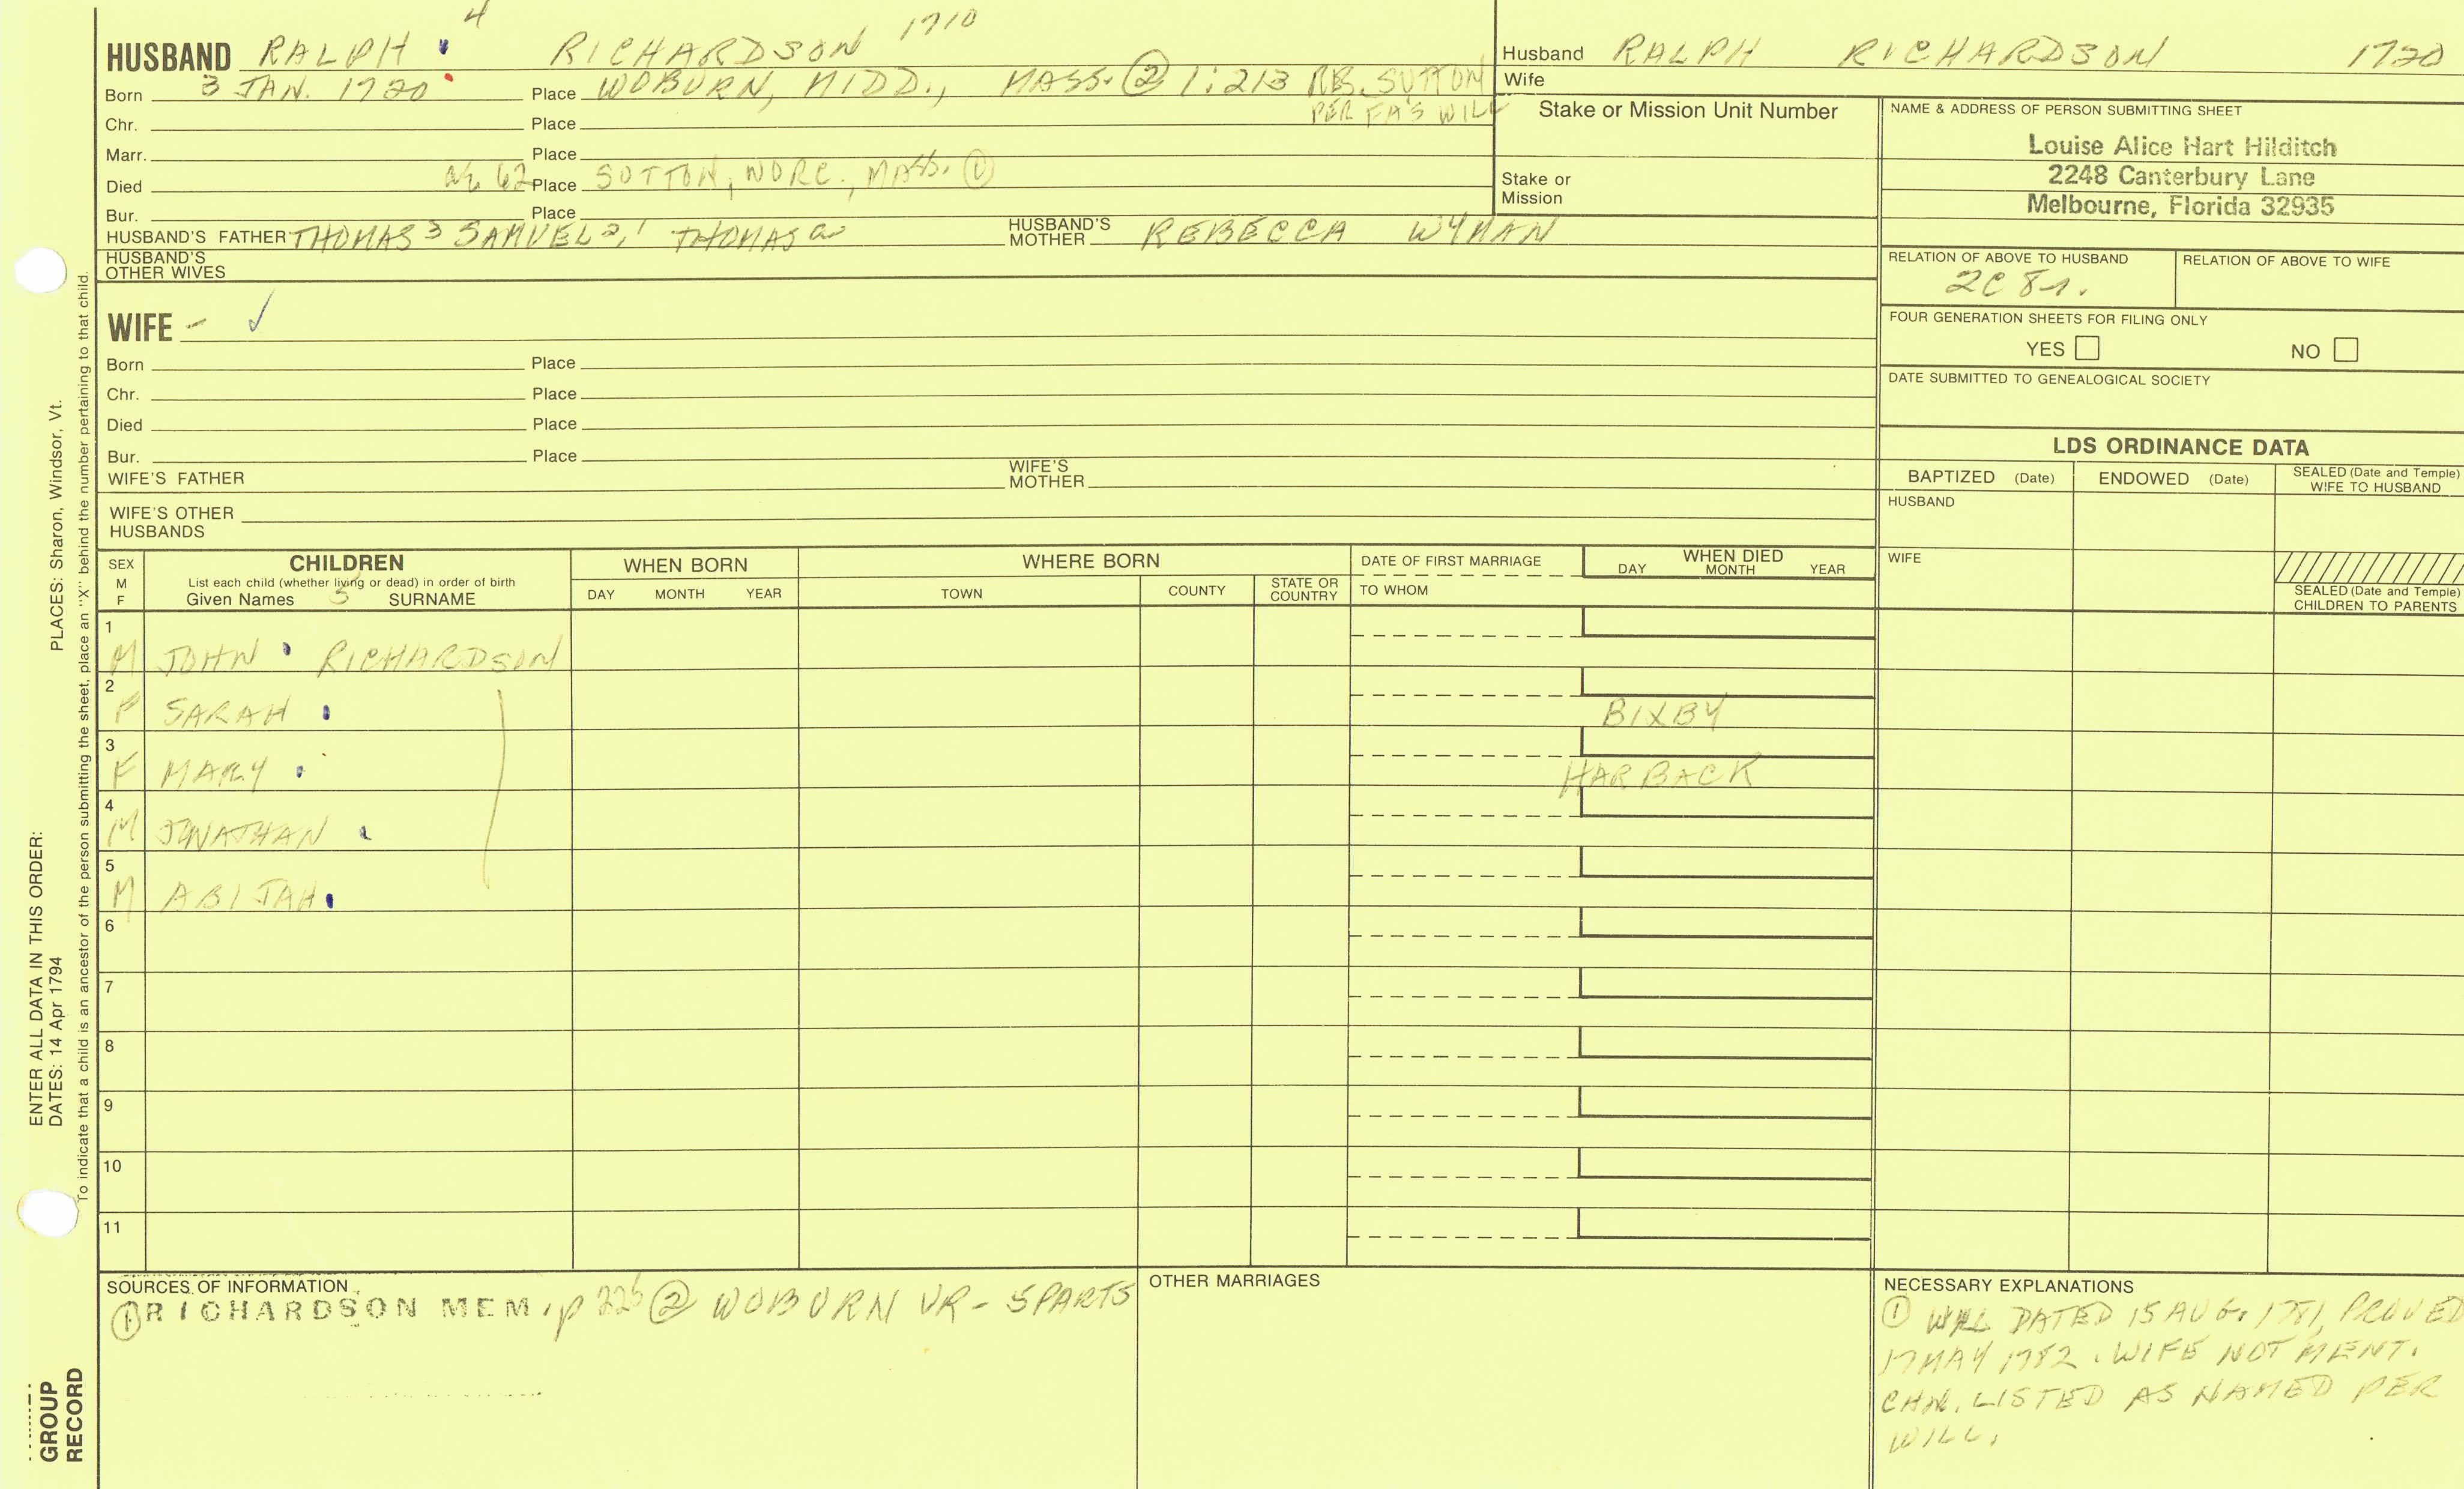 4
HUSBAND RALPH RICHARDSON 1710
Born 3 JAN. 1720 Place WOBURN, MIDD., MASS. ② 1:213 RES. SUTTON
PER FA'S WILL
Chr. Place
Marr. Place
Died 62 Place SUTTON, WORC., MASS. ①
Bur. Place
HUSBAND'S FATHER THOMAS 3 SAMUEL 2, THOMAS HUSBAND'S MOTHER REBECCA WYMAN
HUSBAND'S
OTHER WIVES
Husband RALPH RICHARDSON 1720
Wife
Stake or Mission Unit Number
Stake or
Mission
NAME & ADDRESS OF PERSON SUBMITTING SHEET
Louise Alice Hart Hilditch
2248 Canterbury Lane
Melbourne, Florida 32935
RELATION OF ABOVE TO HUSBAND RELATION OF ABOVE TO WIFE
2C 8r.
FOUR GENERATION SHEETS FOR FILING ONLY
YES NO
DATE SUBMITTED TO GENEALOGICAL SOCIETY
WIFE - ✓
Born Place
Chr. Place
Died Place
Bur. Place
WIFE'S FATHER WIFE'S MOTHER
WIFE'S OTHER
HUSBANDS
LDS ORDINANCE DATA
BAPTIZED (Date) ENDOWED (Date) SEALED (Date and Temple) WIFE TO HUSBAND
HUSBAND
WIFE
SEALED (Date and Temple)
CHILDREN TO PARENTS
SEX M F CHILDREN WHEN BORN WHERE BORN DATE OF FIRST MARRIAGE WHEN DIED
List each child (whether living or dead) in order of birth
Given Names 5 SURNAME DAY MONTH YEAR TOWN COUNTY STATE OR COUNTRY TO WHOM DAY MONTH YEAR
1
M JOHN RICHARDSON
2
F SARAH BIXBY
3
F MARY HARBACK
4
M JONATHAN
5
M ABIJAH
6
7
8
9
10
11
SOURCES OF INFORMATION
① RICHARDSON MEM. p 226 ② WOBURN VR - 5PARTS
OTHER MARRIAGES
NECESSARY EXPLANATIONS
① WILL DATED 15 AUG. 1781, PROVED
17 MAY 1782. WIFE NOT MENT.
CHN. LISTED AS NAMED PER
WILL.
ENTER ALL DATA IN THIS ORDER:
DATES: 14 Apr 1794 PLACES: Sharon, Windsor, Vt.
To indicate that a child is an ancestor of the person submitting the sheet, place an "X" behind the number pertaining to that child.
GROUP
RECORD